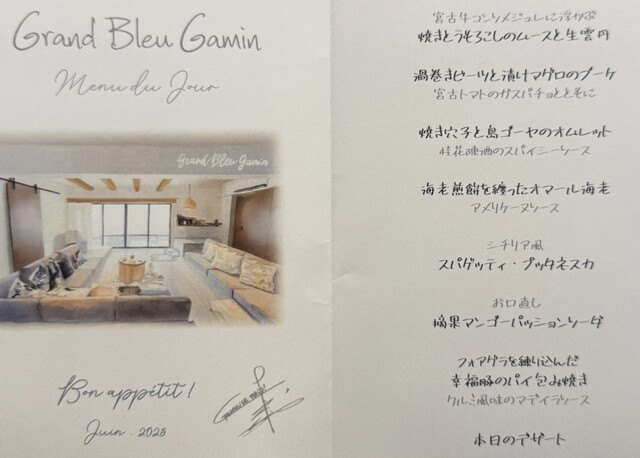 Grand Bleu Gamin
Menu du Jour
Grand Bleu Gamin
Bon appétit !
Juin . 2025
宮古牛コンソメジュレに浮かぶ
焼きとうもろこしのムースと生雲丹
渦巻きビーツと漬けマグロのブーケ
宮古トマトのガスパチョとともに
焼き穴子と島ゴーヤのオムレット
桂花陳酒のスパイシーソース
海老煎餅を纏ったオマール海老
アメリケーヌソース
シチリア風
スパゲッティ・プッタネスカ
お口直し
摘果マンゴーパッションソーダ
フォアグラを練り込んだ
幸福豚のパイ包み焼き
クルミ風味のマデイラソース
本日のデザート